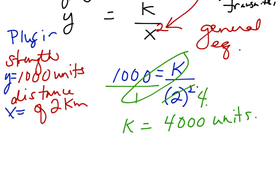 y = K / x²
general
eq.
Plug in
strength
y = 1000 units
distance
x = of 2 Km
1000 / 1 = K / (2)² 4.
K = 4000 units.